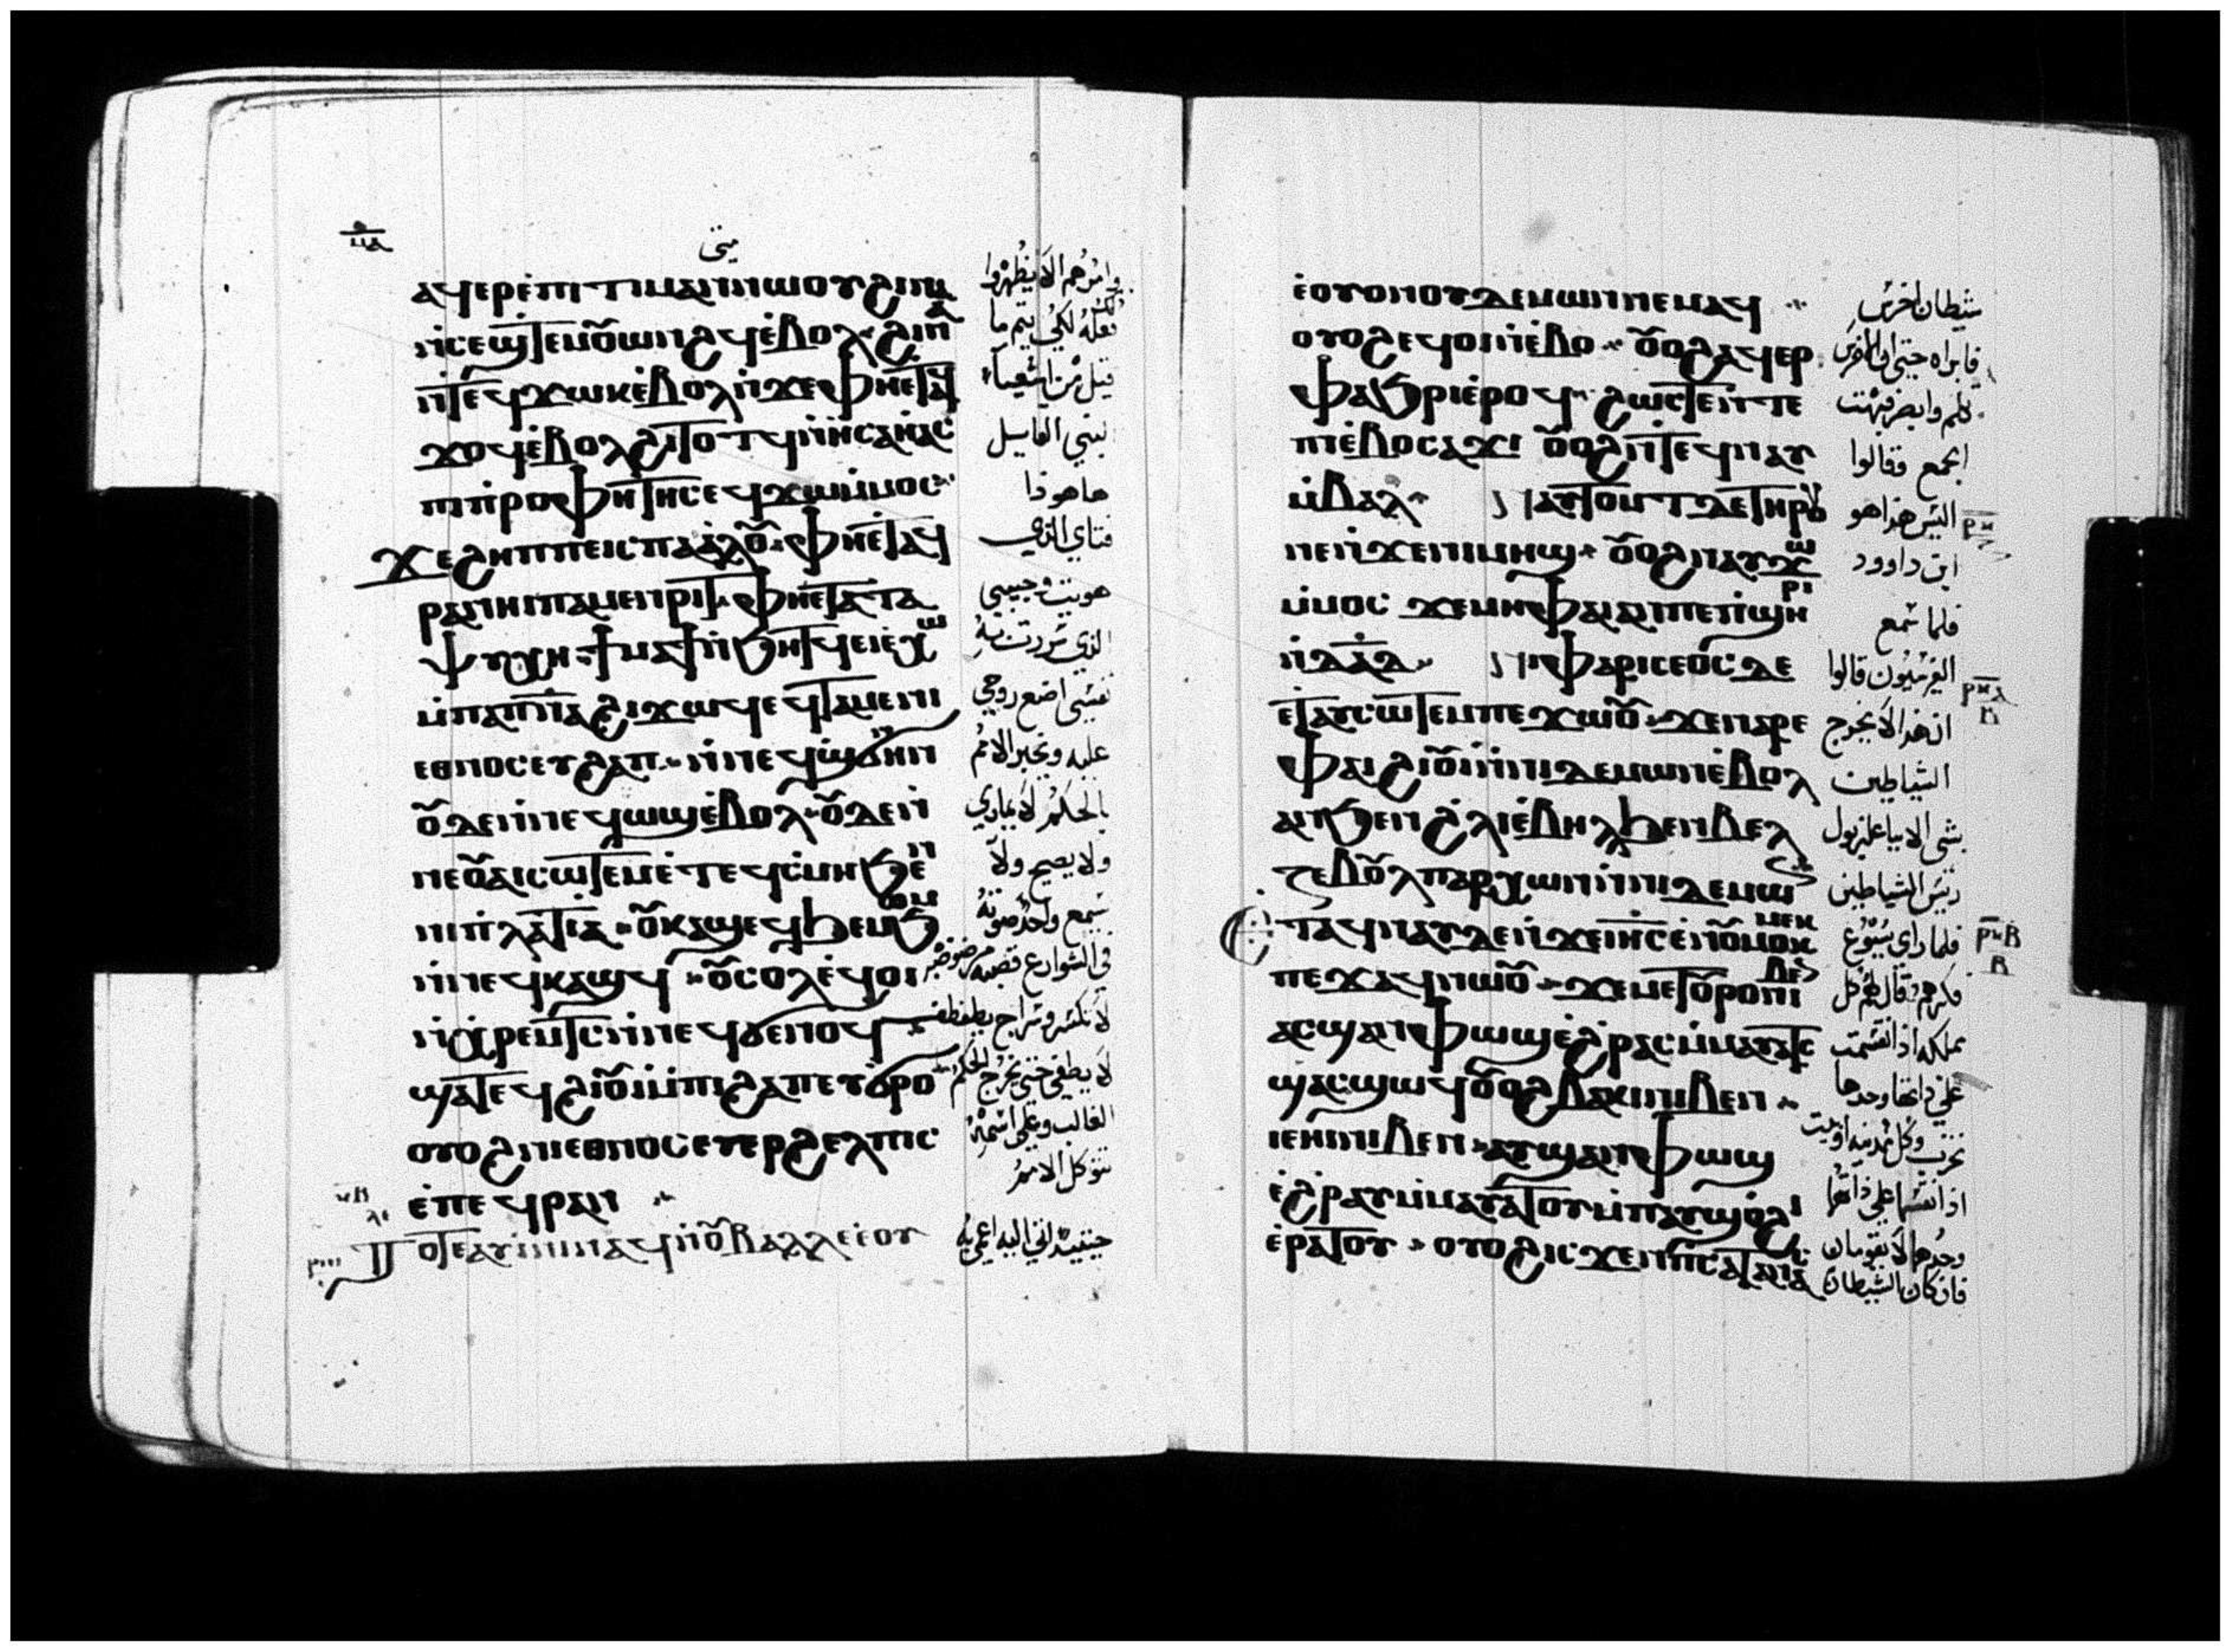 متى
ⲁϥⲉⲣⲉ̇ⲡⲓⲧⲓⲙⲁⲛⲛⲱⲟⲩϩⲓⲛⲁ
ⲛ̇ⲥⲉϣⲧⲉⲙⲟⲩⲱⲛϩϥⲉ̇ⲃⲟⲗ ϩⲓⲛⲁ
ⲛ̇ⲧⲉϥϫⲱⲕⲉ̇ⲃⲟⲗⲛ̇ϫⲉⲫⲏⲉ̇ⲧⲁϥ
ϫⲟϥⲉ̇ⲃⲟⲗϩⲓⲧⲟⲧϥⲛ̇ⲏⲥⲁⲏⲁⲥ
ⲡⲓⲡ̇ⲣⲟⲫⲏⲧⲏⲥⲉϥϫⲱⲙ̇ⲙⲟⲥ
ϫⲉϩⲏⲡⲡⲉⲓⲥⲡⲁⲁ̇ⲗⲟⲩ ⲫⲏⲉ̇ⲧⲁϥ
ⲣⲁⲛⲏⲓⲡⲁⲙⲉⲛⲣⲓⲧ ⲫⲏⲉ̇ⲧⲁⲧⲁ
ⲯⲩⲭⲏ ϯⲙⲁϯⲛ̇ϧⲏⲧϥⲉⲓⲉ̇ⲭⲱ
ⲙ̇ⲡⲁⲡ̅ⲛ̅ⲁ̅ϩⲓϫⲱϥⲉϥⲧⲁⲙⲉⲛⲓ
ⲉⲑⲛⲟⲥⲉⲩϩⲁⲡ ⲛ̇ⲛⲉϥϣϭⲛⲏⲛ
ⲟⲩⲇⲉⲛ̇ⲛⲉϥⲱϣⲉ̇ⲃⲟⲗ ⲟⲩⲇⲉⲛ̇
ⲛⲉⲟⲩⲁⲓⲥⲱⲧⲉⲙⲉ̇ⲧⲉϥⲥ̇ⲙⲏϧⲉⲛ
ⲛⲓⲡ̇ⲗⲁⲧⲓⲁ ⲟⲩⲕⲁϣⲉϥϧⲉⲙϧⲟⲙ
ⲛ̇ⲛⲉϥⲕⲁϣϥ ⲟⲩⲥⲟⲗⲉ̇ϥⲟⲓ
ⲛ̇ⲭⲣⲉⲙⲧⲥⲛ̇ⲛⲉϥϭⲉⲛⲟϥ
ϣⲁⲧⲉϥϩⲓⲟⲩⲓ̇ⲙ̇ⲡⲓϩⲁⲡⲉⲩϭⲣⲟ
ⲟⲩⲟϩⲛⲓⲉⲑⲛⲟⲥⲉⲩⲉⲣϩⲉⲗⲡⲓⲥ
ⲉ̇ⲡⲉϥⲣⲁⲛ
ⲧⲟⲧⲉⲁⲩⲓ̇ⲛⲓⲛⲁϥⲛ̇ⲟⲩⲃⲁⲗⲗⲉⲉ̇ⲟⲩ
وامرهم الا يظهروا
فعله لكي يتم ما
قيل من اشعياء
النبي القايل
هاهوذا
فتاي الذي
هويت وحبيبي
الذي سررت به
نفسي اضع روحي
عليه ويخبر الامم
بالحكم لا يماري
ولا يصيح ولا
يسمع واحد صوته
في الشوارع قصبة مرضوضة
لا يطفي حتى يخرج الحكم
الغالب وعلى اسمه
تتوكل الامم
حينيذ اتي اليه اعمي به
ⲉ̇ⲟⲩⲟⲛⲟⲩⲇⲉⲙⲱⲛⲛⲉⲙⲁϥ
ⲟⲩⲟϩⲉϥⲟⲓⲛ̇ⲉ̇ⲃⲟ ⲟⲩⲟϩⲁϥⲉⲣ
ⲫⲁϧⲣⲓⲉ̇ⲣⲟϥ ϩⲱⲥⲧⲉⲛ̇ⲧⲉ
ⲡⲓⲉ̇ⲃⲟⲥⲁϫⲓ ⲟⲩⲟϩⲛ̇ⲧⲉϥⲛⲁⲩ
ⲙ̇ⲃⲁⲗ ⲁⲩⲧⲟⲙⲧⲇⲉⲧⲏⲣⲟⲩ
ⲡⲉⲛ̇ϫⲉⲛⲓⲙⲏϣ ⲟⲩⲟϩⲛⲁⲩϫⲱ
ⲙ̇ⲙⲟⲥ ϫⲉⲙⲏⲫⲁⲓⲁⲛⲡⲉⲡ̇ϣⲏⲣⲓ
ⲛ̇ⲇⲁ̅ⲇ̅ ⲛⲓⲫⲁⲣⲓⲥⲉⲟⲥⲇⲉ
ⲉ̇ⲧⲁⲩⲥⲱⲧⲉⲙⲡⲉϫⲱⲟⲩ ϫⲉⲛⲁⲣⲉ
ⲫⲁⲓϩⲓⲟⲩⲓ̇ⲛ̇ⲛⲓⲇⲉⲙⲱⲛⲉ̇ⲃⲟⲗ
ⲁⲛϧⲉⲛϩ̇ⲗⲓⲉ̇ⲃⲏⲗϧⲉⲛⲃⲉⲗ
ⲍⲉⲃⲟⲩⲗⲡⲁⲣⲭⲱⲛⲛ̇ⲛⲓⲇⲉⲙⲱⲛ
ⲉⲧⲁϥⲛⲁⲩⲇⲉⲛ̇ϫⲉⲓⲏⲥⲉ̇ⲛⲟⲩⲙⲟⲕⲙⲉⲕ
ⲡⲉϫⲁϥⲛⲱⲟⲩ ϫⲉⲙⲉⲧⲟⲩⲣⲟⲛⲓⲃⲉⲛ
ⲁⲥϣⲁⲛⲫⲱϣⲉ̇ϩ̇ⲣⲁⲥⲙ̇ⲙⲁⲩⲁⲧⲥ
ϣⲁⲥϣⲱϥⲟⲩⲟϩⲃⲁⲕⲓⲛⲓⲃⲉⲛ
ⲓⲉⲏⲓⲛⲓⲃⲉⲛ ⲁⲩϣⲁⲛⲫⲱϣ
ⲉ̇ϩ̇ⲣⲁⲩⲙ̇ⲙⲁⲩⲁⲧⲟⲩⲙ̇ⲡⲁⲩϣⲟ̇ϩⲓ
ⲉ̇ⲣⲁⲧⲟⲩ ⲟⲩⲟϩⲓⲥϫⲉⲛ̇ⲡⲥⲁⲧⲁⲛⲁⲥ
شيطان اخرس
فابراه حتى ان الاخرس
تكلم وابصر فبهت
الجمع فقالوا
اليس هذا هو
ابن داوود
فلما سمع
الفريسيون قالوا
ان هذا لا يخرج
الشياطين
بشي الا بباعلزبول
رييس الشياطين
فلما راي يسوع
فكرهم قال لهم كل
مملكة اذا انقسمت
على ذاتها وحدها
تخرب وكل مدينة او بيت
اذا انقسما على ذاتهما
وحدهما لا يقومان
فان كان الشيطان